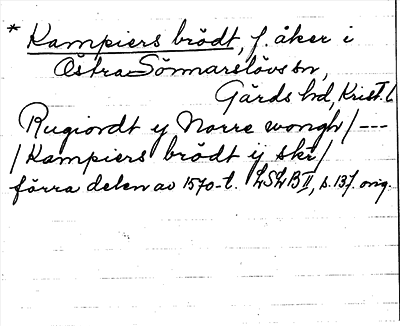 * Kampiers brödt, f. åker i
Östra Sönnarslövs sn,
Gärds hd, Krist. l.
Rugiordt ij Norre wongh /---
/Kampiers brödt ij skr/
förra delen av 1570-t. LSLB II, s. 137. orig.